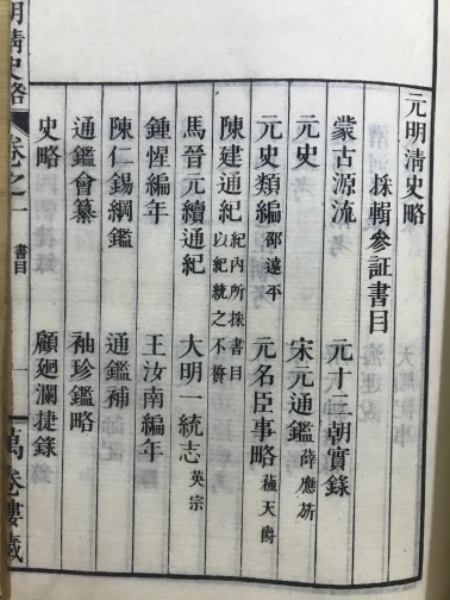 元明清史略
採輯參証書目
蒙古源流 元十三朝實錄
元史 宋元通鑑 薛應旂
元史類編 邵遠平 元名臣事略 蘇天爵
陳建通紀 紀內所採書目以紀統之不贅
馬晉元續通紀 大明一統志 英宗
鍾惺編年 王汝南編年
陳仁錫綱鑑 通鑑補
通鑑會纂 袖珍鑑略
史略 顧廻瀾捷錄
明清史略 卷之一 書目 一 萬卷樓藏